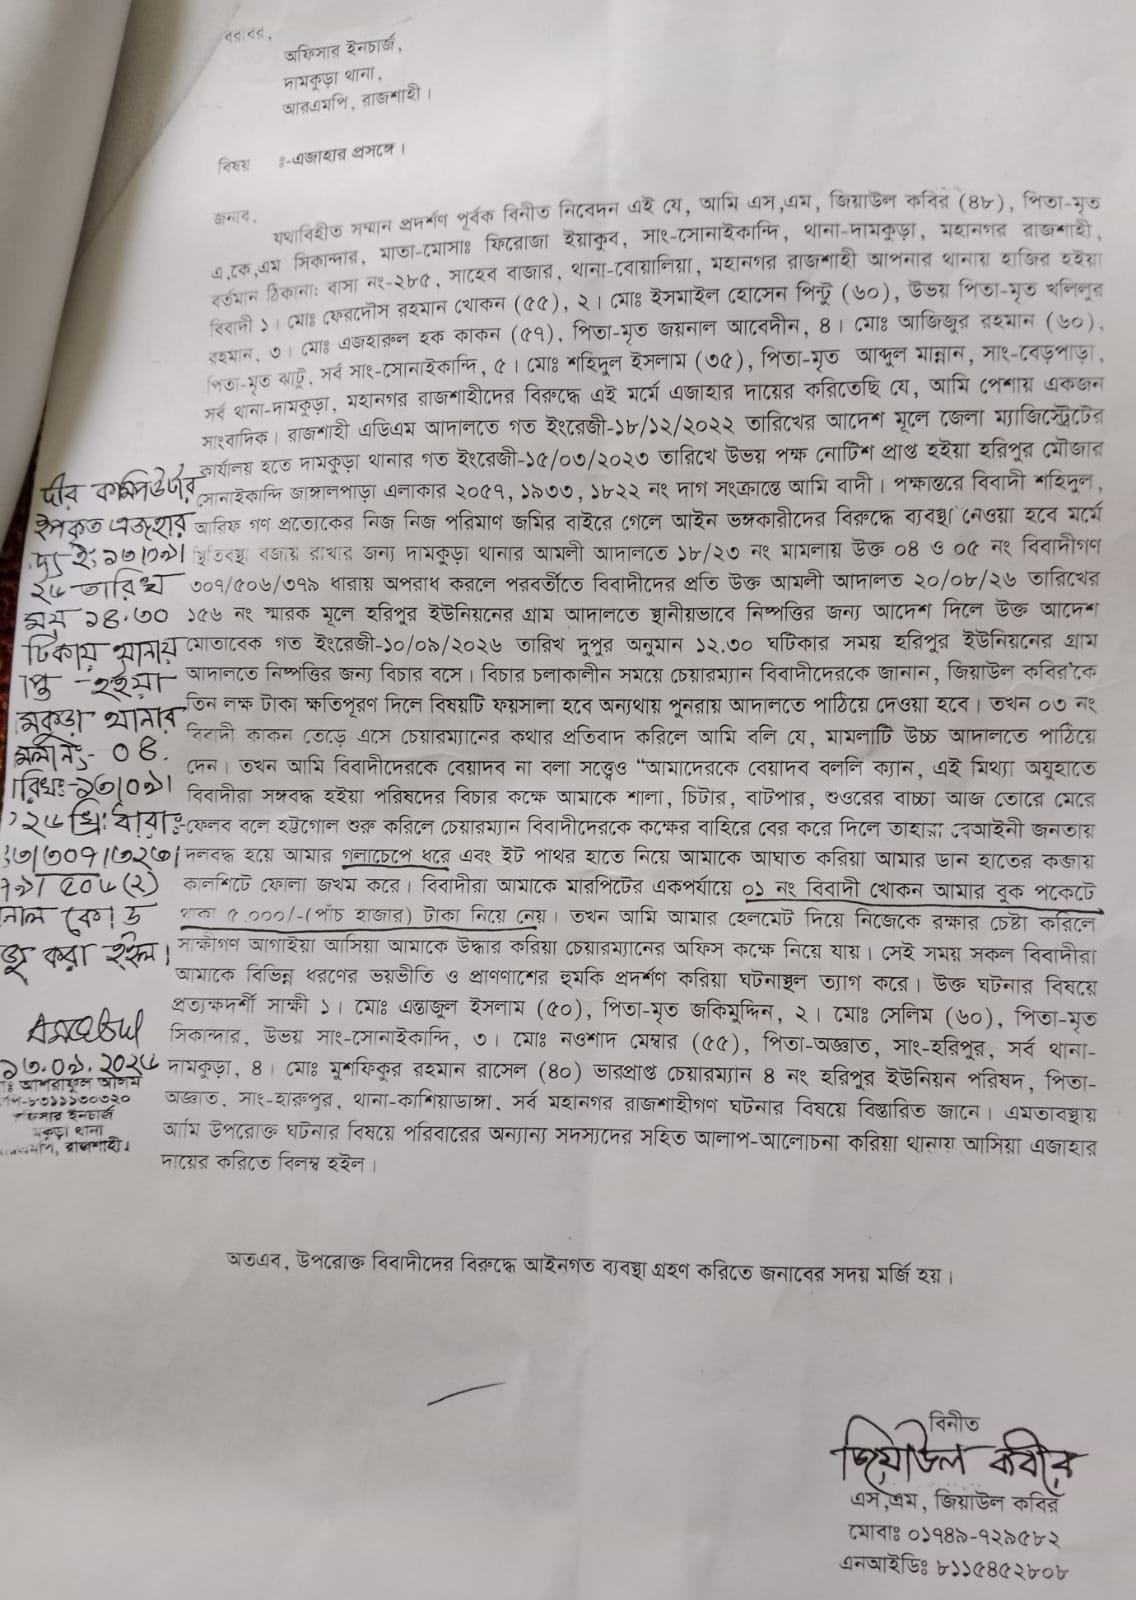 বরাবর,
অফিসার ইনচার্জ,
দামকুড়া থানা,
আরএমপি, রাজশাহী।
বিষয় ঃ-এজাহার প্রসঙ্গে।
জনাব,
যথাবিহীত সম্মান প্রদর্শণ পূর্বক বিনীত নিবেদন এই যে, আমি এস,এম, জিয়াউল কবির (৪৮), পিতা-মৃত
এ,কে,এম সিকান্দার, মাতা-মোসাঃ ফিরোজা ইয়াকুব, সাং-সোনাইকান্দি, থানা-দামকুড়া, মহানগর রাজশাহী,
বর্তমান ঠিকানা: বাসা নং-২৮৫, সাহেব বাজার, থানা-বোয়ালিয়া, মহানগর রাজশাহী আপনার থানায় হাজির হইয়া
বিবাদী ১। মোঃ ফেরদৌস রহমান খোকন (৫৫), ২। মোঃ ইসমাইল হোসেন পিন্টু (৬০), উভয় পিতা-মৃত খলিলুর
রহমান, ৩। মোঃ এজহারুল হক কাকন (৫৭), পিতা-মৃত জয়নাল আবেদীন, ৪। মোঃ আজিজুর রহমান (৬০),
পিতা-মৃত ঝাটু, সর্ব সাং-সোনাইকান্দি, ৫। মোঃ শহিদুল ইসলাম (৩৫), পিতা-মৃত আব্দুল মান্নান, সাং-বেড়পাড়া,
সর্ব থানা-দামকুড়া, মহানগর রাজশাহীদের বিরুদ্ধে এই মর্মে এজাহার দায়ের করিতেছি যে, আমি পেশায় একজন
সাংবাদিক। রাজশাহী এডিএম আদালতে গত ইংরেজী-১৮/১২/২০২২ তারিখের আদেশ মূলে জেলা ম্যাজিস্ট্রেটের
কার্যালয় হতে দামকুড়া থানার গত ইংরেজী-১৫/০৩/২০২৩ তারিখে উভয় পক্ষ নোটিশ প্রাপ্ত হইয়া হরিপুর মৌজার
সোনাইকান্দি জাঙ্গালপাড়া এলাকার ২০৫৭, ১৯৩৩, ১৮২২ নং দাগ সংক্রান্তে আমি বাদী। পক্ষান্তরে বিবাদী শহিদুল,
আরিফ গণ প্রত্যেকের নিজ নিজ পরিমাণ জমির বাইরে গেলে আইন ভঙ্গকারীদের বিরুদ্ধে ব্যবস্থা নেওয়া হবে মর্মে
স্থিতবস্থা বজায় রাখার জন্য দামকুড়া থানার আমলী আদালতে ১৮/২৩ নং মামলায় উক্ত ০৪ ও ০৫ নং বিবাদীগণ
৩০৭/৫০৬/৩৭৯ ধারায় অপরাধ করলে পরবর্তীতে বিবাদীদের প্রতি উক্ত আমলী আদালত ২০/০৮/২৬ তারিখের
১৫৬ নং স্মারক মূলে হরিপুর ইউনিয়নের গ্রাম আদালতে স্থানীয়ভাবে নিষ্পত্তির জন্য আদেশ দিলে উক্ত আদেশ
মোতাবেক গত ইংরেজী-১০/০৯/২০২৬ তারিখ দুপুর অনুমান ১২.৩০ ঘটিকার সময় হরিপুর ইউনিয়নের গ্রাম
আদালতে নিষ্পত্তির জন্য বিচার বসে। বিচার চলাকালীন সময়ে চেয়ারম্যান বিবাদীদেরকে জানান, জিয়াউল কবির'কে
তিন লক্ষ টাকা ক্ষতিপূরণ দিলে বিষয়টি ফয়সালা হবে অন্যথায় পুনরায় আদালতে পাঠিয়ে দেওয়া হবে। তখন ০৩ নং
বিবাদী কাকন তেড়ে এসে চেয়ারম্যানের কথার প্রতিবাদ করিলে আমি বলি যে, মামলাটি উচ্চ আদালতে পাঠিয়ে
দেন। তখন আমি বিবাদীদেরকে বেয়াদব না বলা সত্ত্বেও “আমাদেরকে বেয়াদব বললি ক্যান, এই মিথ্যা অযুহাতে
বিবাদীরা সঙ্গবদ্ধ হইয়া পরিষদের বিচার কক্ষে আমাকে শালা, চিটার, বাটপার, শুওরের বাচ্চা আজ তোরে মেরে
ফেলব বলে হট্টগোল শুরু করিলে চেয়ারম্যান বিবাদীদেরকে কক্ষের বাহিরে বের করে দিলে তাহারা বেআইনী জনতায়
দলবদ্ধ হয়ে আমার গলাচেপে ধরে এবং ইট পাথর হাতে নিয়ে আমাকে আঘাত করিয়া আমার ডান হাতের কব্জায়
কালশিটে ফোলা জখম করে। বিবাদীরা আমাকে মারপিটের একপর্যায়ে ০১ নং বিবাদী খোকন আমার বুক পকেটে
থাকা ৫,০০০/-(পাঁচ হাজার) টাকা নিয়ে নেয়। তখন আমি আমার হেলমেট দিয়ে নিজেকে রক্ষার চেষ্টা করিলে
সাক্ষীগণ আগাইয়া আসিয়া আমাকে উদ্ধার করিয়া চেয়ারম্যানের অফিস কক্ষে নিয়ে যায়। সেই সময় সকল বিবাদীরা
আমাকে বিভিন্ন ধরণের ভয়ভীতি ও প্রাণণাশের হুমকি প্রদর্শণ করিয়া ঘটনাস্থল ত্যাগ করে। উক্ত ঘটনার বিষয়ে
প্রত্যক্ষদর্শী সাক্ষী ১। মোঃ এন্তাজুল ইসলাম (৫০), পিতা-মৃত জকিমুদ্দিন, ২। মোঃ সেলিম (৬০), পিতা-মৃত
সিকান্দার, উভয় সাং-সোনাইকান্দি, ৩। মোঃ নওশাদ মেম্বার (৫৫), পিতা-অজ্ঞাত, সাং-হরিপুর, সর্ব থানা-
দামকুড়া, ৪। মোঃ মুশফিকুর রহমান রাসেল (৪০) ভারপ্রাপ্ত চেয়ারম্যান ৪ নং হরিপুর ইউনিয়ন পরিষদ, পিতা-
অজ্ঞাত, সাং-হারুপুর, থানা-কাশিয়াডাঙ্গা, সর্ব মহানগর রাজশাহীগণ ঘটনার বিষয়ে বিস্তারিত জানে। এমতাবস্থায়
আমি উপরোক্ত ঘটনার বিষয়ে পরিবারের অন্যান্য সদস্যদের সহিত আলাপ-আলোচনা করিয়া থানায় আসিয়া এজাহার
দায়ের করিতে বিলম্ব হইল।
অতএব, উপরোক্ত বিবাদীদের বিরুদ্ধে আইনগত ব্যবস্থা গ্রহণ করিতে জনাবের সদয় মর্জি হয়।
কম্পিউটার
কৃত এজাহার
১৩/০৯/
২৬ তারিখ
১৪.৩০
টিকায় থানায়
হইয়া
মকুড়া থানার
মলা নং- ০৪.
রিখঃ-১৩/০৯/
২৬ খ্রিঃ ধারাঃ-
/৩০৭/৩২৩/
৫০৬(২)
নাল কোড
জু করা হইল।
১৩.০৯.২০২৬
আশরাফুল আলম
বিপি-৮৩১১১৩০৩২০
অফিসার ইনচার্জ
মকুড়া থানা
রাজশাহী।
বিনীত
জিয়াউল কবীর
এস,এম, জিয়াউল কবির
মোবাঃ ০১৭৪৯-৭২৯৫৮২
এনআইডিঃ ৮১১৫৪৫২৮০৮